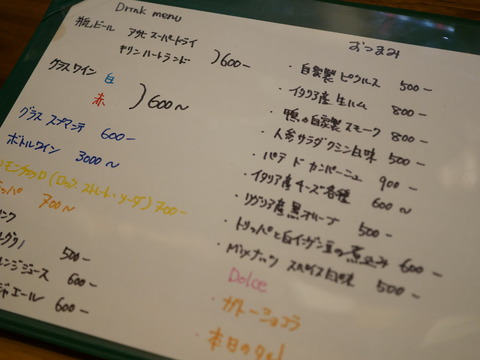 Drink menu
瓶ビール アサヒスーパードライ
キリンハートランド )600-
グラスワイン 白
赤 )600~
グラス スプマンテ 600-
ボトルワン 3000~
(ロック、ストレート・ソーダ) 700-
ッパ 700~
ンク
500-
レンジジュース 600-
ジャエール 600-
おつまみ
・自家製ピクルス 500-
・イタリア産生ハム 800-
・鴨の自家製スモーク 800-
・人参サラダクミン風味 500-
・パテ ド カンパーニュ 900-
・イタリア産チーズ各種 600~
・リグリア産黒オリーブ 500-
・トリッパと白インゲン豆の煮込み 600-
・Mixナッツ スパイス風味 500-
Dolce
・ガトーショコラ
・本日の